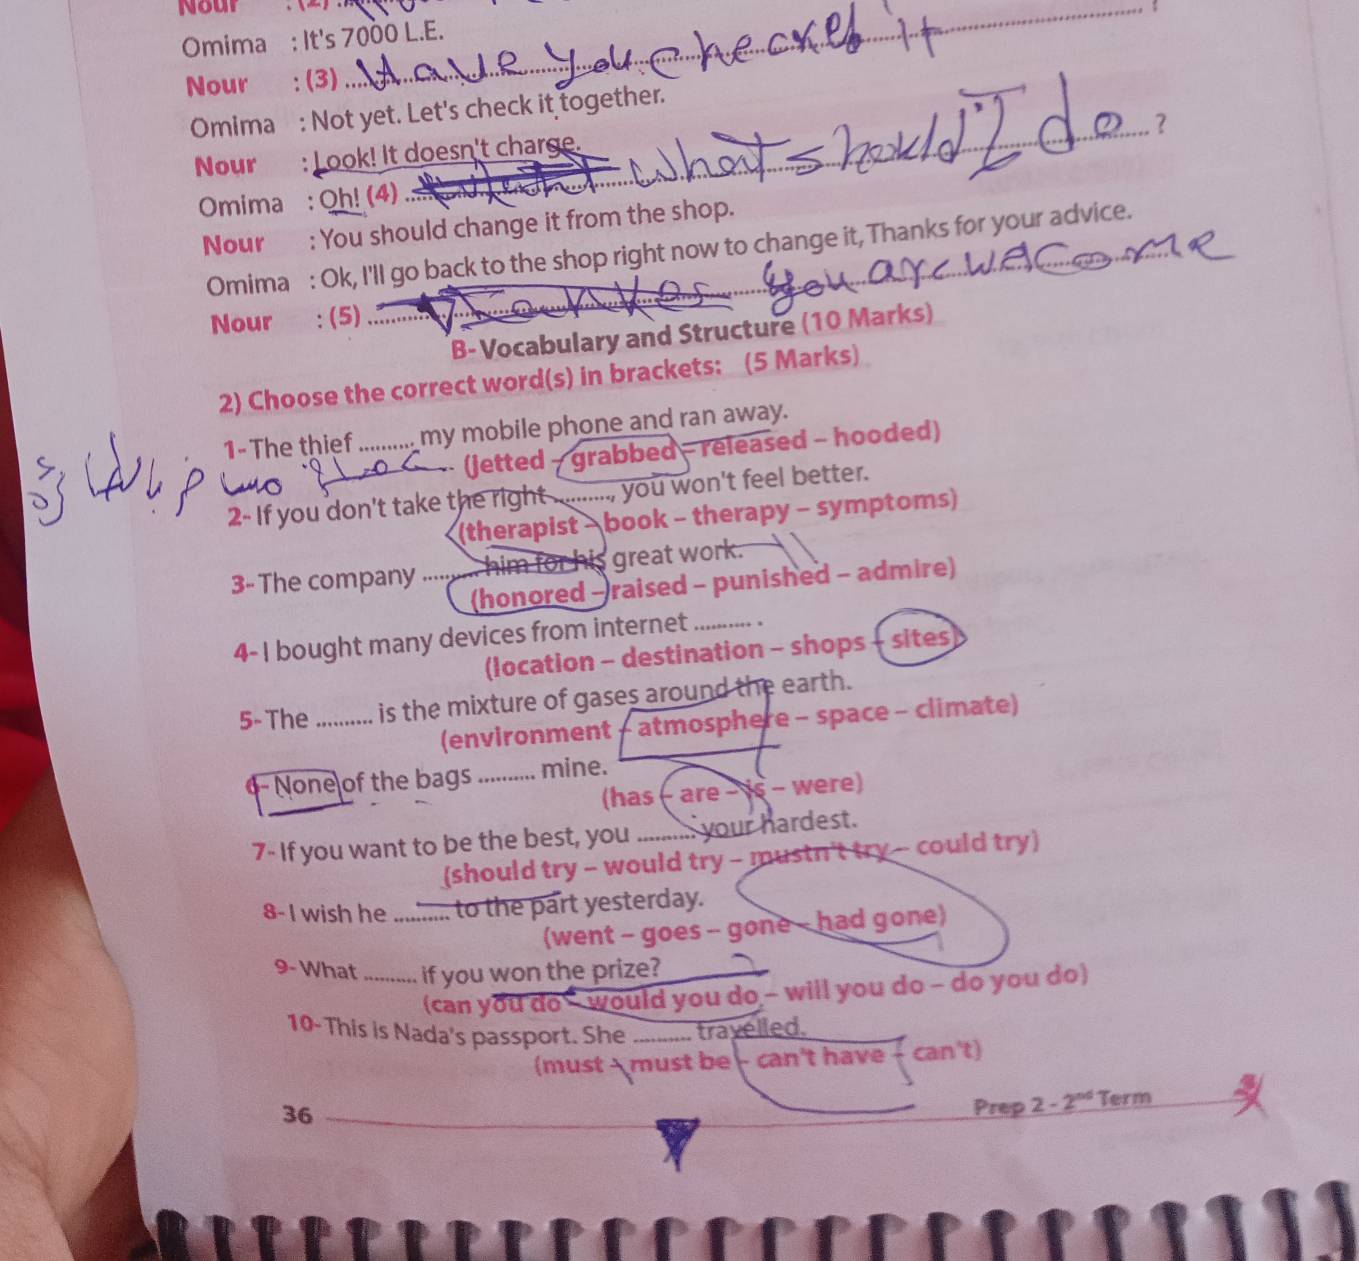 Nour : (2)
Omima : It's 7000 L.E.
Nour : (3) Have you checked it ?
Omima : Not yet. Let's check it together.
Nour : Look! It doesn't charge.
Omima : Oh! (4) What should I do ?
Nour : You should change it from the shop.
Omima : Ok, I'll go back to the shop right now to change it, Thanks for your advice.
Nour : (5) you are welcome
B- Vocabulary and Structure (10 Marks)
2) Choose the correct word(s) in brackets: (5 Marks)
1- The thief .......... my mobile phone and ran away.
(Jetted – grabbed – released – hooded)
2- If you don't take the right .........., you won't feel better.
(therapist – book – therapy – symptoms)
3- The company .......... him for his great work.
(honored – raised – punished – admire)
4- I bought many devices from internet .......... .
(location – destination – shops – sites)
5- The .......... is the mixture of gases around the earth.
(environment – atmosphere – space – climate)
6- None of the bags .......... mine.
(has – are – is – were)
7- If you want to be the best, you .......... your hardest.
(should try – would try – mustn't try – could try)
8- I wish he .......... to the part yesterday.
(went – goes – gone – had gone)
9- What .......... if you won the prize?
(can you do – would you do – will you do – do you do)
10- This is Nada's passport. She .......... travelled.
(must – must be – can't have – can't)
36
Prep 2 - 2nd Term